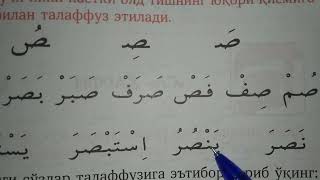 пастки олд тишнинг юқори қисмига
билан талаффуз этилади.
صَ صِ صُ
صُمْ صِفْ فَصْ صَرَفَ صَبَرْ بَصَرْ
نَصَرَ يَنْصُرُ اِسْتَبْصَرَ
сўзлар талаффузига эътибор ўқинг: